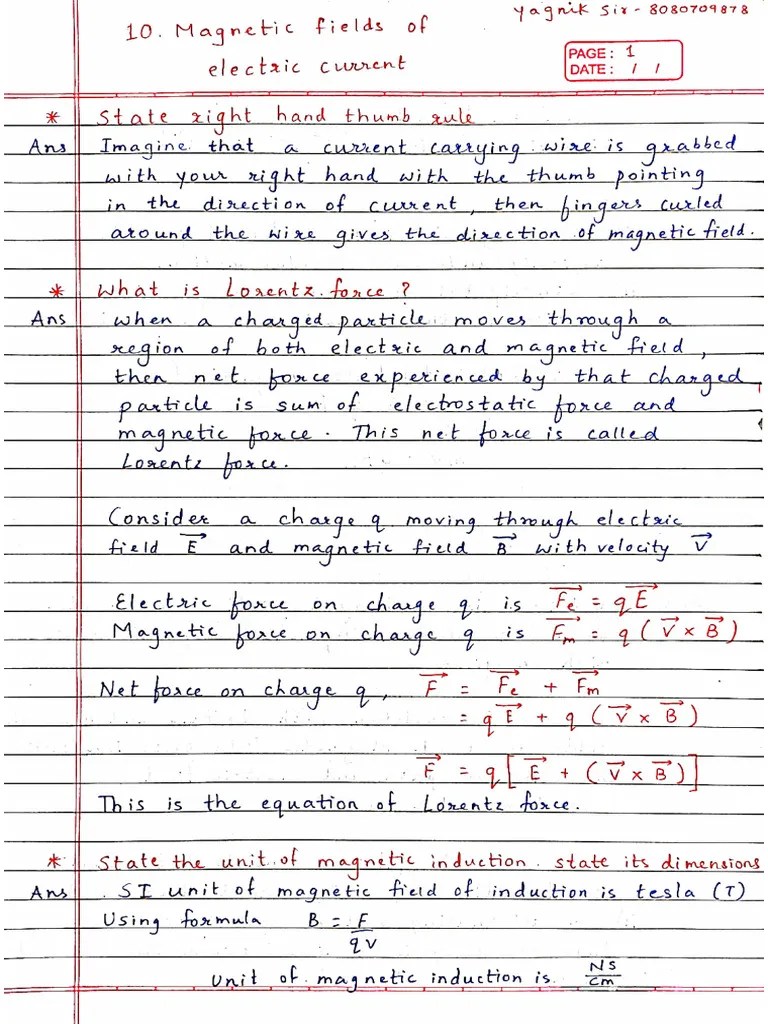 Yagnik Sir - 8080709878
10. Magnetic fields of
electric current
PAGE: 1
DATE: / /
* State right hand thumb rule
Ans Imagine that a current carrying wire is grabbed
with your right hand with the thumb pointing
in the direction of current, then fingers curled
around the wire gives the direction of magnetic field.
* What is Lorentz force?
Ans When a charged particle moves through a
region of both electric and magnetic field,
then net force experienced by that charged
particle is sum of electrostatic force and
magnetic force. This net force is called
Lorentz force.
Consider a charge q moving through electric
field E⃗ and magnetic field B⃗ with velocity V⃗
Electric force on charge q is F⃗e = qE⃗
Magnetic force on charge q is F⃗m = q (V⃗ × B⃗)
Net force on charge q, F⃗ = F⃗e + F⃗m
= qE⃗ + q (V⃗ × B⃗)
F⃗ = q[E⃗ + (V⃗ × B⃗)]
This is the equation of Lorentz force.
* State the unit of magnetic induction. state its dimensions
Ans SI unit of magnetic field of induction is tesla (T)
Using formula B = F/qV
unit of magnetic induction is Ns/Cm